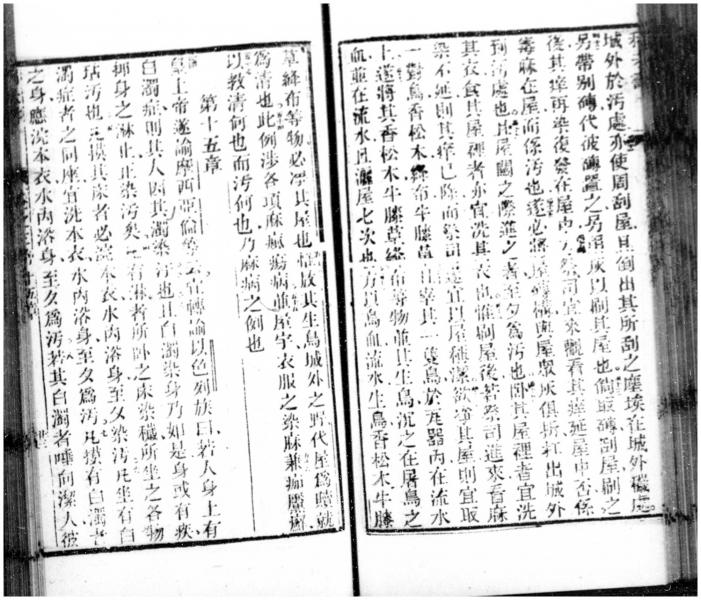 城外於污處亦使周刮屋且倒出其所刮之塵埃在城外穢處
另帶別磚代破磚置之另用灰以刷其屋也倘取磚刮屋刷之
後其瘴再染復發在屋內又祭司宜來觀看其瘴延屋中否係
毒痳在屋而係污也遂必將屋磚樋與屋眾灰俱折扛出城外
到污處也且屋關之際進之者至夕為污也臥其屋裡者宜洗
其衣食其屋裡者亦宜洗其衣也惟刷屋後若祭司進來看痳
染不延則其瘴已除而祭司遂宜以屋稱潔欲淨其屋則宜取
一對鳥香松木絳布牛膝草且宰其一隻鳥於瓦器內在流水
上遂將其香松木牛膝草絳布等物並其生鳥沉之在屠鳥之
血並在流水且灑屋七次也方以鳥血流水生鳥香松木牛膝
草絳布等物必淨其屋也惟放其生鳥城外之野代屋為贖就
為清也此例涉各項痳瘋瘍病並屋宇衣服之染痳兼痂靨癬
以教清何也而污何也乃痳病之例也
第十五章
皇上帝遂諭摩西亞倫等云宜轉諭以色列族曰若人身上有
白濁症則其人因其濁染污也且白濁染身乃如是身或有疾
抑身之淋止正染污矣有淋者所臥之床染穢所坐之各物
玷污也且摸其床者必浣本衣水內浴身至夕染污凡坐有白
濁症者之何座宜洗本衣水內浴身至夕為污凡摸有白濁者
之身應浣本衣水內浴身至夕為污若其白濁者唾向潔人彼